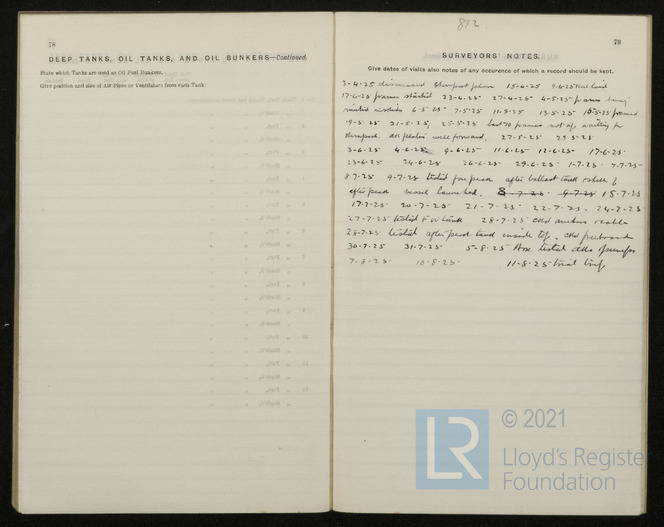 78
DEEP TANKS, OIL TANKS, AND OIL BUNKERS—Continued.
State which Tanks are used as Oil Fuel Bunkers.
Give position and size of Air Pipes or Ventilators from each Tank.
812
79
SURVEYORS' NOTES.
Give dates of visits also notes of any occurence of which a record should be kept.
3-4-25 discussed 15-4-25 9-6-25 Keel laid
17-6-25 frames started 23-4-25 27-4-25 4-5-25 frames being
6-5-25 7-5-25 11-5-25 13-5-25 18-5-25
19-5-25 21-5-25, 25-5-25 Last 10 frames not up, waiting for
sternpost, all plates well forward, 27-5-25 29-5-25
3-6-25 4-6-25 9-6-25 11-6-25 12-6-25 17-6-25
23-6-25 24-6-25 26-6-25 29-6-25 1-7-25 7-7-25
8-7-25 9-7-25 tested fore peak after ballast tank
after peak vessel launched. 8-7-25 9-7-25 15-7-25
17-7-25 20-7-25 21-7-25 22-7-25 24-7-25
27-7-25 tested F W tank 28-7-25 anchors cables
28-7-25 tested after peak tank inside
30-7-25 31-7-25 5-8-25 Hose tested
7-8-25 10-8-25 11-8-25 trial trip
LR
© 2021
Lloyd's Register
Foundation